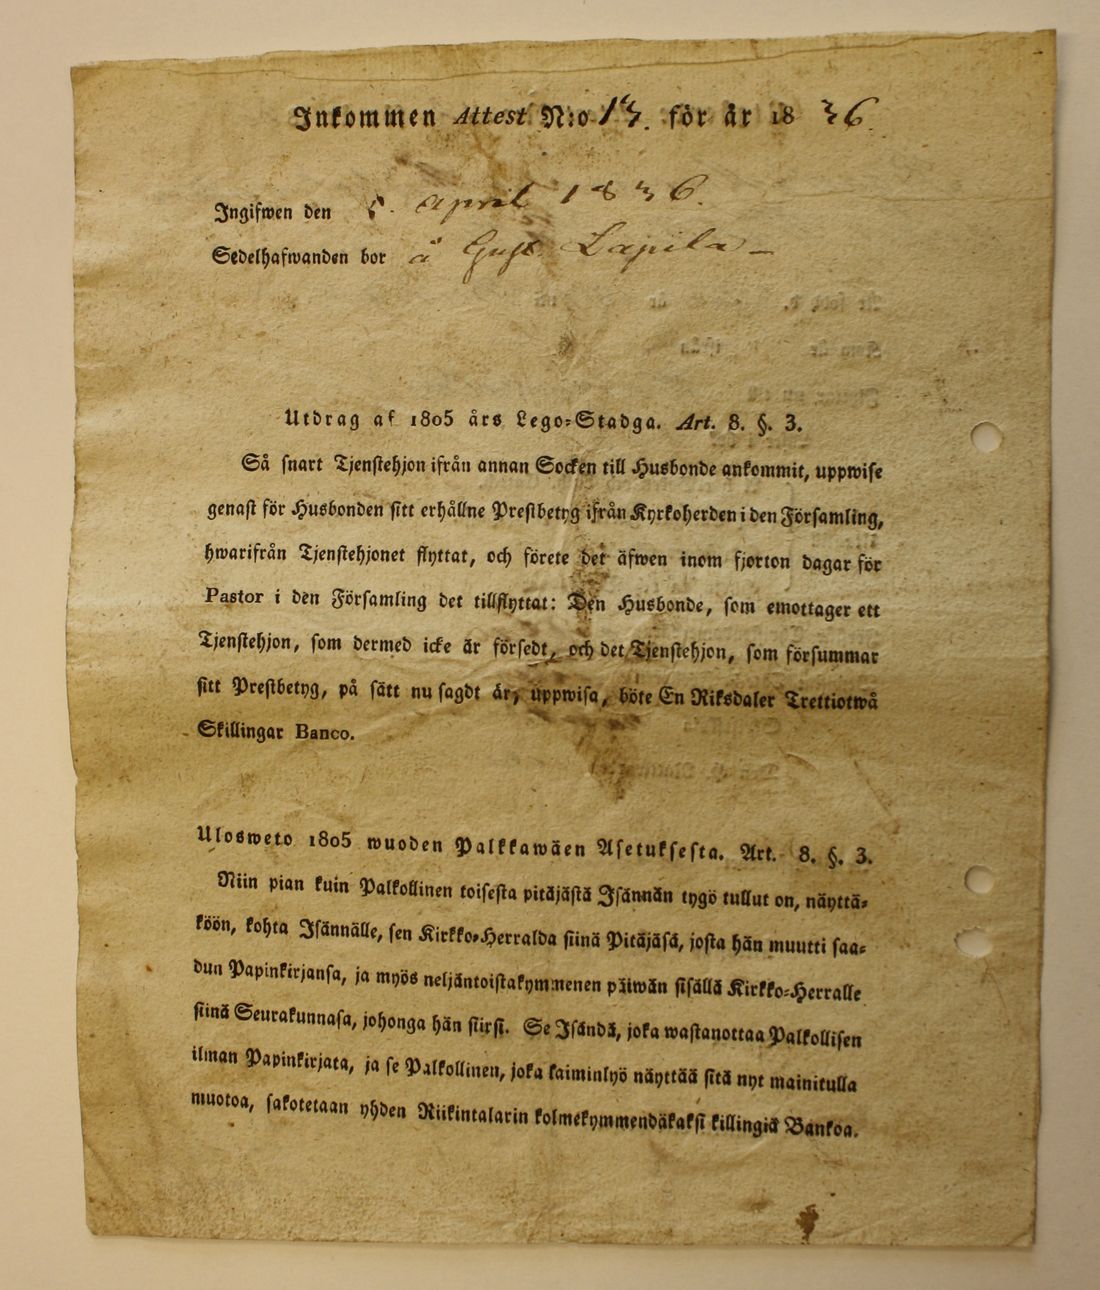 Inkommen Attest N:o 13. för år 1836.
Ingifwen den 8. april 1836.
Sedelhafwanden bor å Gust Lapila –
Utdrag af 1805 års Lego-Stadga. Art. 8. §. 3.
Så snart Tjenstehjon ifrån annan Socken till Husbonde ankommit, uppwise
genast för Husbonden sitt erhållne Prestbetyg ifrån Kyrkoherden i den Församling,
hwarifrån Tjenstehjonet flyttat, och förete det äfwen inom fjorton dagar för
Pastor i den Församling det tillflyttat: Den Husbonde, som emottager ett
Tjenstehjon, som dermed icke är försedt, och det Tjenstehjon, som försummar
sitt Prestbetyg, på sätt nu sagdt är, uppwisa, böte En Riksdaler Trettiotwå
Skillingar Banco.
Ulosweto 1805 wuoden Palkkawäen Asetuksesta. Art. 8. §. 3.
Niin pian kuin Palkollinen toisesta pitäjästä Isännän tygö tullut on, näyttä-
köön, kohta Isännälle, sen Kirkko-Herralda siinä Pitäjäsä, josta hän muutti saa-
dun Papinkirjansa, ja myös neljäntoistakymmenen päiwän sisällä Kirkko-Herralle
siinä Seurakunnasa, johonga hän siirsi. Se Isändä, joka wastanottaa Palkollisen
ilman Papinkirjata, ja se Palkollinen, joka laiminlyö näyttää sitä nyt mainitulla
muotoa, sakotetaan yhden Riikintalarin kolmekymmendäkaksi killingiä Bankoa.